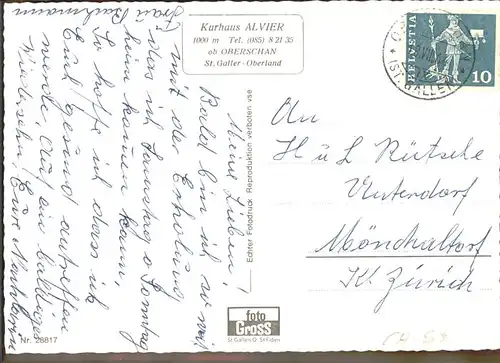 Kurhaus ALVIER
1000 m Tel. (085) 8 21 35
ab OBERSCHAN
St. Galler-Oberland
HELVETIA
10
(ST. GALLEN)
Meine Lieben!
Bald bin ich so weit
mit der Erholung
dass ich Samstag o Sonntag
heim kommen kann,
So hoffe ich dass ich
Euch gesund antreffen
werde, Auf ein baldiges
Wiedersehn Eure Nachbarin
Frau
An
H u L Rütsche
Unterdorf
Mönchaltorf
Kt Zürich
Echter Fotodruck Reproduktion verboten vse
foto
Gross
St Gallen O St Fiden
Nr. 28817